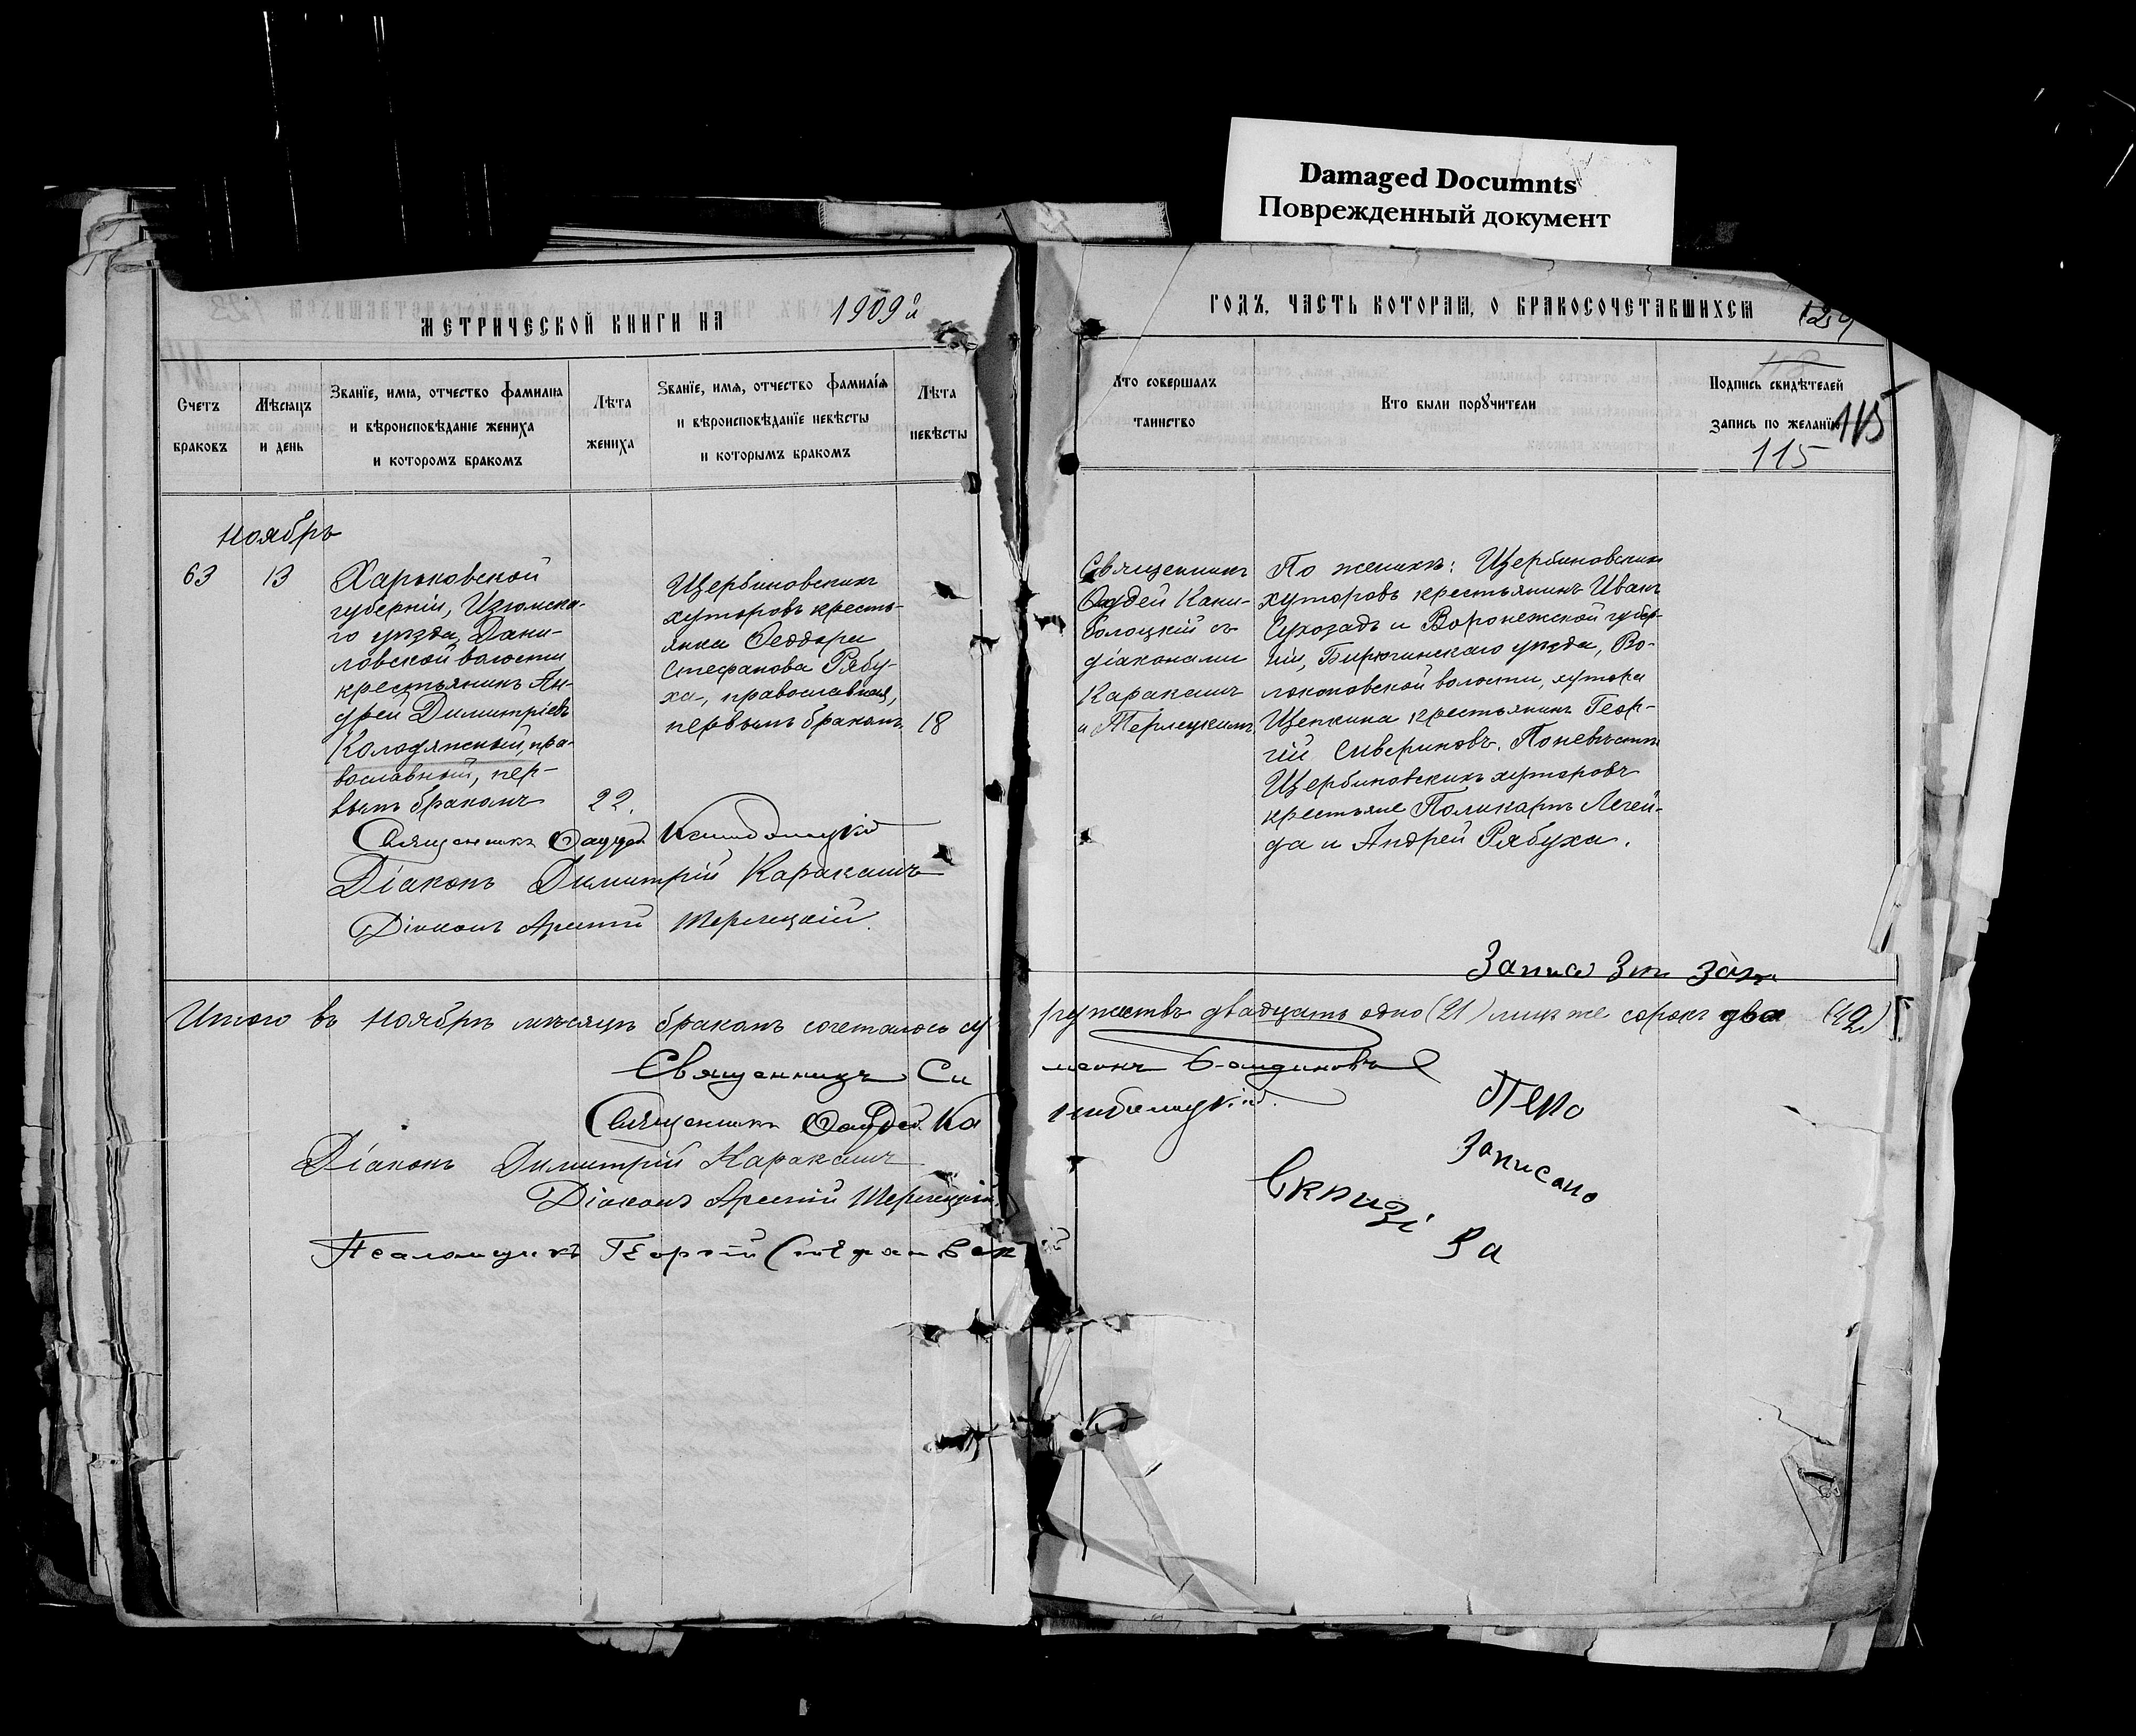 Damaged Documnts
Поврежденный документ
МЕТРИЧЕСКОЙ КНИГИ НА 1909й
ГОДЪ, ЧАСТЬ ВТОРАЯ, О БРАКОСОЧЕТАВШИХСЯ
Счетъ
браковъ
Мѣсяцъ
и день
Званїе, имя, отчество фамилия
и вѣроисповѣданїе жениха
и которомъ бракомъ
Лѣта
жениха
Званїе, имя, отчество фамилїя
и вѣроисповѣданїе невѣсты
и которымъ бракомъ
Лѣта
невѣсты
Кто совершалъ
таинство
Кто были порꙋчители
Подпись свидѣтелей
запись по желанїю
115
115
Ноябрь
63
13
Харьковской
губерніи, Изюмска-
го уѣзда, Дани-
ловской волости
крестьянинъ Ан-
дрей Димитріевъ
Колодяжный, пра-
вославный, пер-
вымъ бракомъ
22.
Щербиновскихъ
хуторовъ кресть-
янка Феодора
Стефанова Рябу-
ха, православная,
первымъ бракомъ
18
Священникъ
Фаддей Кани-
болоцкій съ
діаконами
Каракашъ
и Терлецкимъ
По женихѣ: Щербиновскихъ
хуторовъ крестьянинъ Иванъ
Сухозадъ и Воронежской губер-
ніи, Бирючинскаго уѣзда, Во-
локоновской волости, хутора
Щепкина крестьянинъ Геор-
гій Сивериновъ. По невѣстѣ
Щербиновскихъ хуторовъ
крестьяне Поликарпъ Легей-
да и Андрей Рябуха.
Священникъ Фаддей Каниболоцкій
Діаконъ Димитрій Каракашъ
Діаконъ Арсеній Терлецкій.
Итого въ Ноябрѣ мѣсяцѣ бракомъ сочеталось су
пружествъ двадцать одно (21) лицъ же сорокъ два (42)
Священникъ Си
меонъ
Священникъ Фаддей Ка
ниболоцкій.
Діаконъ Димитрій Каракашъ
Діаконъ Арсеній Терлецкій.
Псаломщикъ Георгій Стефановскій
записано
За